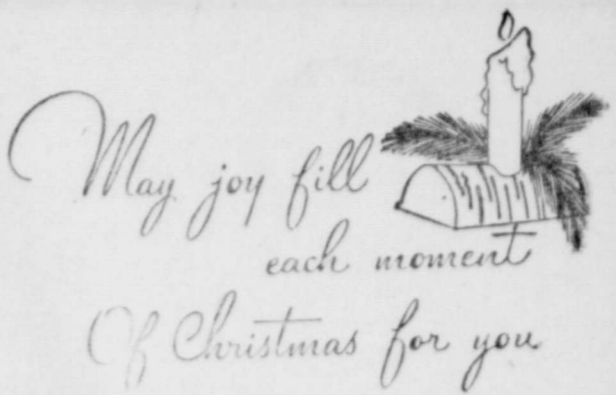 May joy fill
each moment
Of Christmas for you